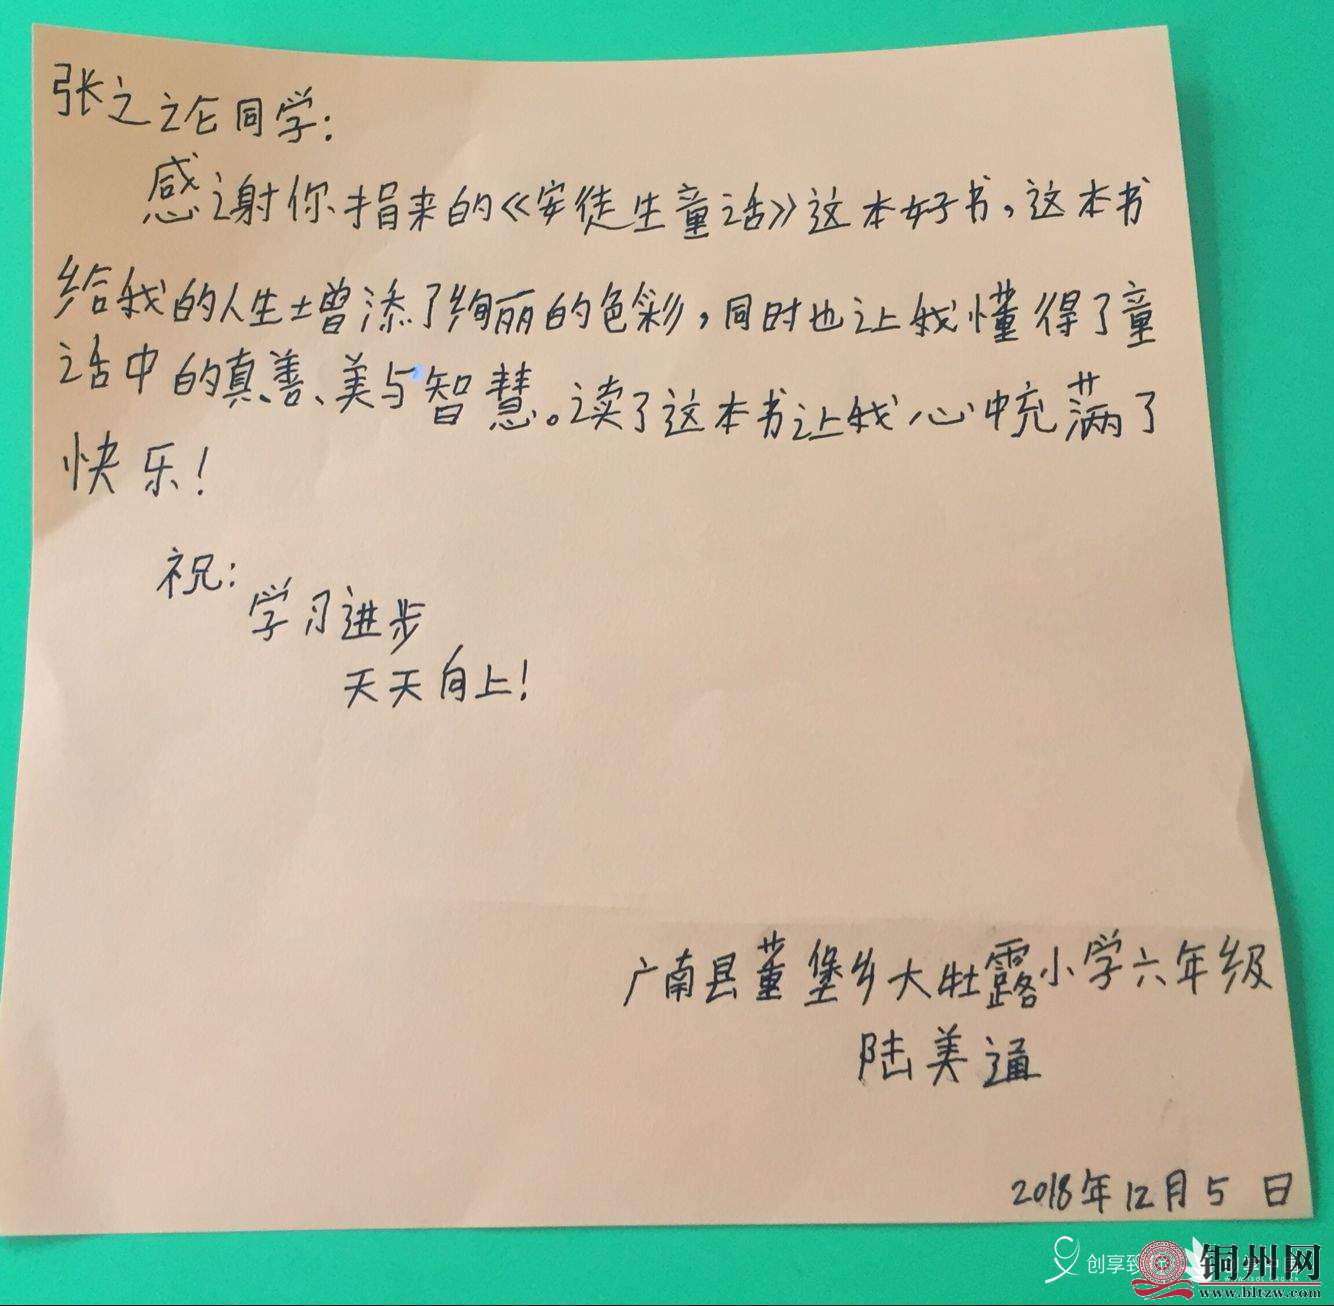 张之论同学：
感谢你捐来的《安徒生童话》这本好书，这本书
给我的人生增添了绚丽的色彩，同时也让我懂得了童
话中的真、善、美与智慧。读了这本书让我心中充满了
快乐！
祝：
学习进步
天天向上！
广南县董堡乡大牡露小学六年级
陆美通
2018年12月5日
创享致
铜州网
www.bltzw.com